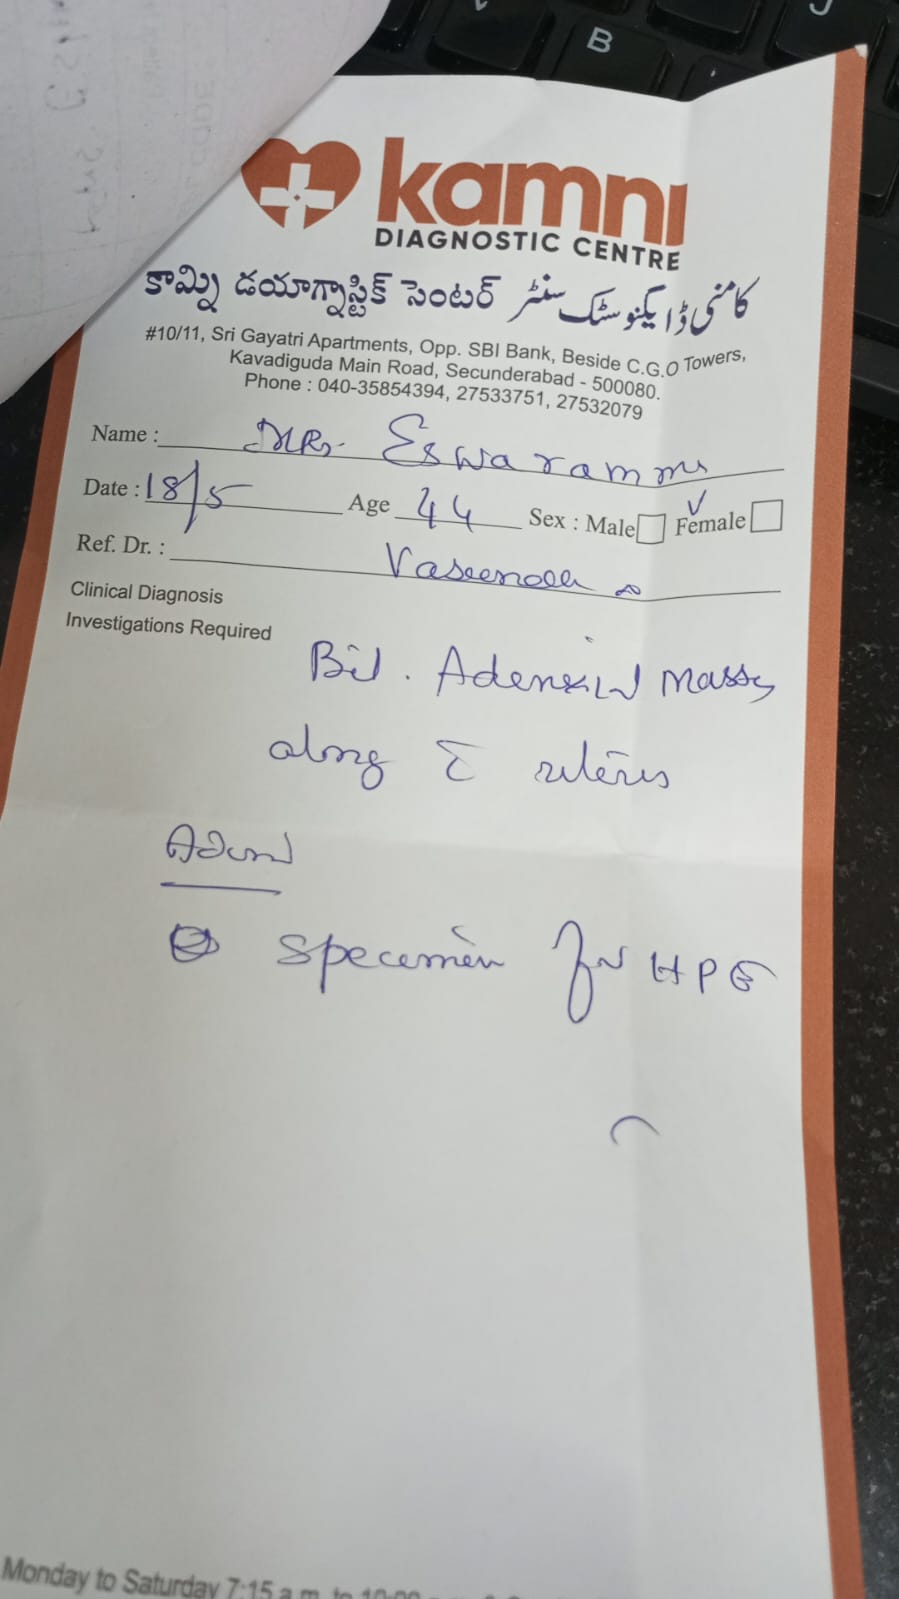 B
kamni
DIAGNOSTIC CENTRE
కామ్ని డయాగ్నొస్టిక్ సెంటర్ کامنی ڈایگنوسٹک سنٹر
#10/11, Sri Gayatri Apartments, Opp. SBI Bank, Beside C.G.O Towers,
Kavadiguda Main Road, Secunderabad - 500080.
Phone : 040-35854394, 27533751, 27532079
Name : Mrs. Eswaramma
Date : 18/5 Age 44 Sex : Male Female ✓
Ref. Dr. :
Clinical Diagnosis
Investigations Required
Bil. Adenexial Mass
along c̄ uterus
Specimen for HPE
Monday to Saturday 7:15 a.m. to